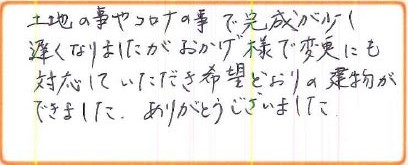 土地の事やコロナの事で完成が少し
遅くなりましたがおかげ様で変更にも
対応していただき希望どおりの建物が
できました。ありがとうございました。